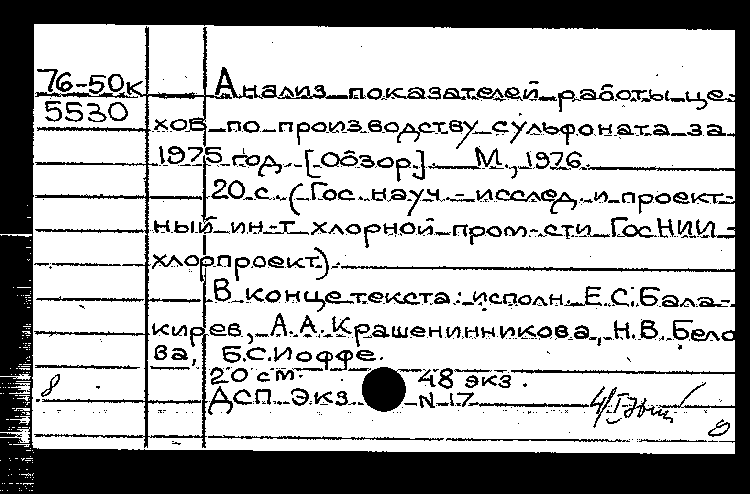 76-50к Анализ показателей работы це-
5530
хов по производству сульфоната за
1975 год. [Обзор]. М., 1976.
20 с. (Гос. науч.-исслед. и проект-
ный ин-т хлорной пром-сти ГосНИИ-
хлорпроект).
В конце текста: исполн. Е.С.Бала-
кирев, А.А.Крашенинникова, Н.В.Бело
ва, Б.С.Иоффе.
20 см. 48 экз.
8 ДСП Экз N 17